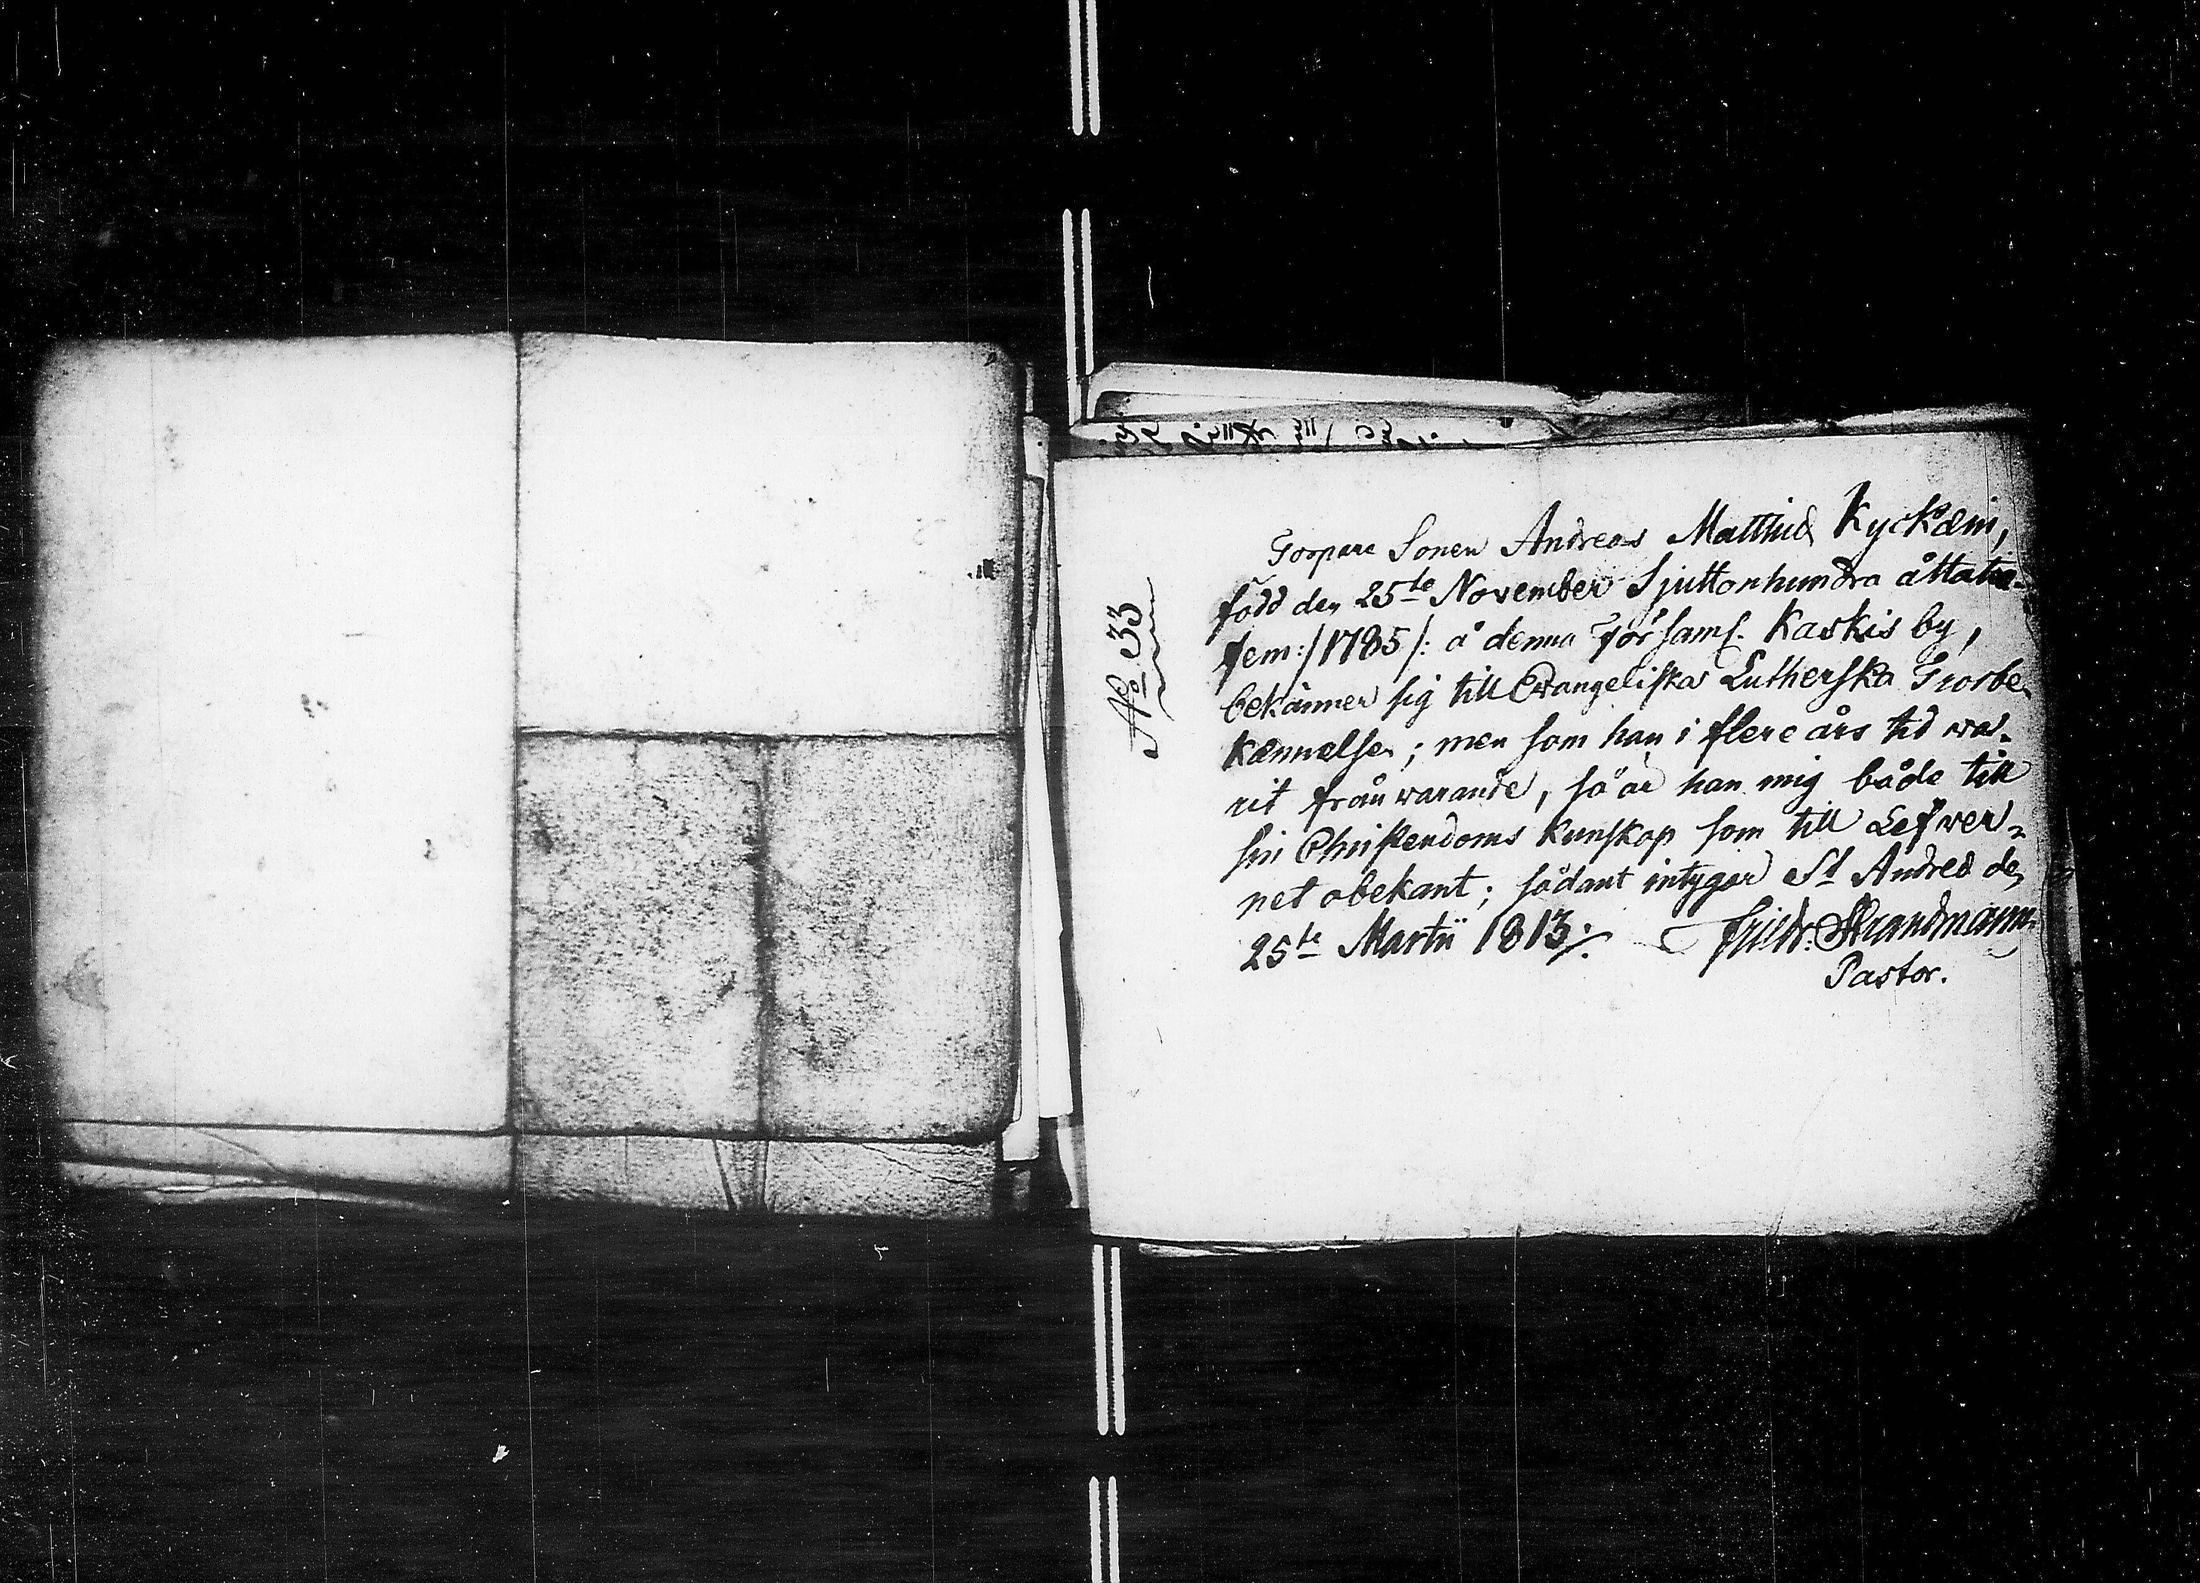 No 33
Torpare Sonen Andreas Matthiæ Kyckæin,
född den 25te November Sjuttonhundra åttatio-
fem :/1785/: å denna Församl. Kaskis by,
bekänner sig till Evangeliska Lutherska Trosbe-
kännelsen; men som han i flere års tid wa-
rit från warande, så är han mig både till
sin Christendoms kunskap som till Lefver-
net obekant; sådant intygar St Andreæ den
25te Martii 1813 ./.
Friedr: Strandmann.
Pastor.